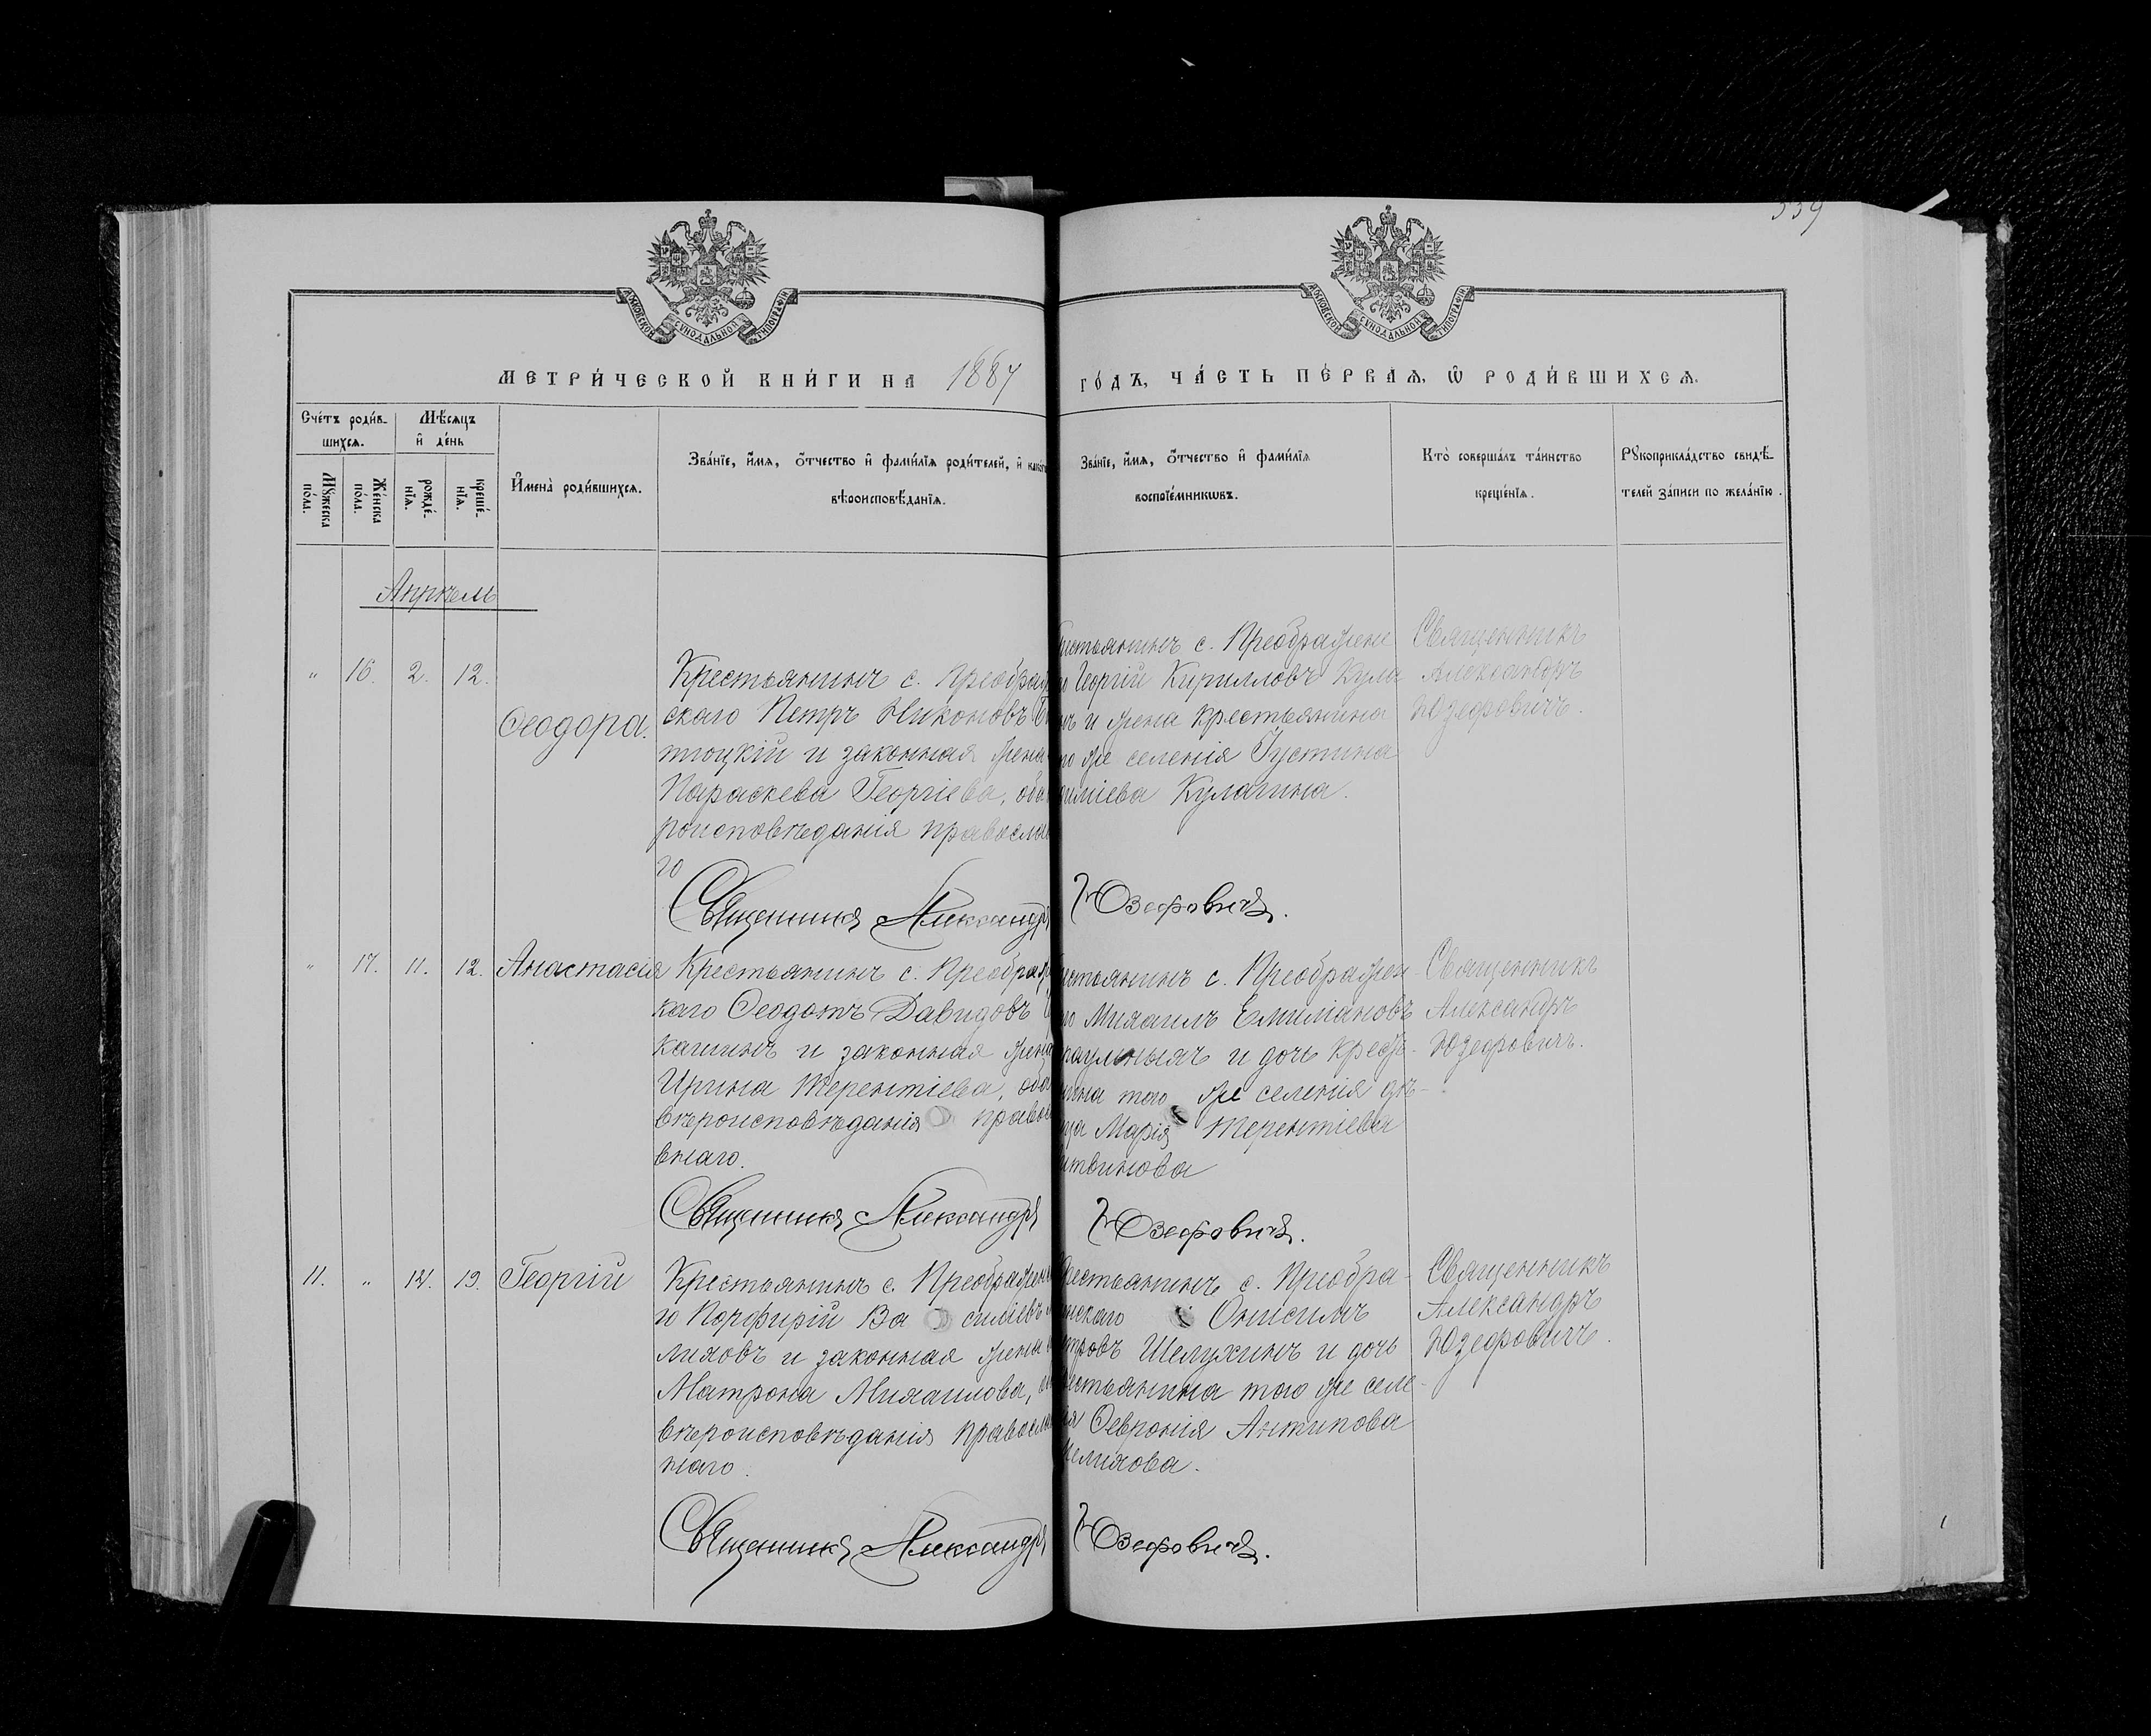 339
МОСКОВСКОЙ СѴНОДАЛЬНОЙ ТИПОГРАФІИ
МОСКОВСКОЙ СѴНОДАЛЬНОЙ ТИПОГРАФІИ
МЕТРИ́ЧЕСКОЙ КНИ́ГИ НА 1887 ГО́ДЪ, ЧА́СТЬ ПЕ́РВАЯ, Ѽ РОДИ́ВШИХСЯ.
Сче́тъ роди́в-
шихся.
Мꙋ́жеска по́ла.
Же́нска по́ла.
Мѣ́сяцъ
и҆ де́нь
рожде́-
нїя.
креще́-
нїя.
И҆мена̀ роди́вшихся.
Зва́нїе, и҆́мя, ѻ҆́тчество и҆ фами́лїя роди́телей, и҆ како́гѡ
вѣроисповѣ́данїя.
Зва́нїе, и҆́мя, ѻ҆́тчество и҆ фами́лїя
воспрїе́мникѡвъ.
Кто̀ соверша́лъ та́инство
креще́нїя.
Рꙋкоприкла́дство свидѣ́-
телей за́писи по жела́нїю.
Апрѣль
" 16. 2. 12.
Ѳеодора.
Крестьянинъ с. Преображ
скаго Петръ Никоновъ
тоцкій и законная жена
Параскева Георгіева, обо
роисповѣданія правосла
го
рестьянинъ с. Преображене
Георгій Кирилловъ Кула
нъ и жена крестьянина
го же селенія Густина
силіева Кулагина.
Священникъ
Александръ
Юзефовичъ.
Священникъ Александръ Юзефовичъ.
" 17. 11. 12. Анастасія
Крестьянинъ с. Преображ
каго Ѳеодотъ Давидовъ
кашинъ и законная жена
Ирина Терентіева, оба
вѣроисповѣданія правос
внаго.
естьянинъ с. Преображен-
го Михаилъ Емиліановъ
раульныхъ и дочь кресть-
нина того же селенія дѣ-
ица Марія Терентіева
итвинова
Священникъ
Александръ
Юзефовичъ.
Священникъ Александръ Юзефовичъ.
11. " 14. 19. Георгій
Крестьянинъ с. Преображен
го Порфирій Ва силіевъ
лиховъ и законная жена
Матрона Михаилова,
вѣроисповѣданія православ
наго.
рестьянинъ с. Преобра-
нскаго Онисимъ
етровъ Шелухинъ и дочь
естьянина того же селе-
ія Ѳевронія Антипова
елихова.
Священникъ
Александръ
Юзефовичъ.
Священникъ Александръ Юзефовичъ.